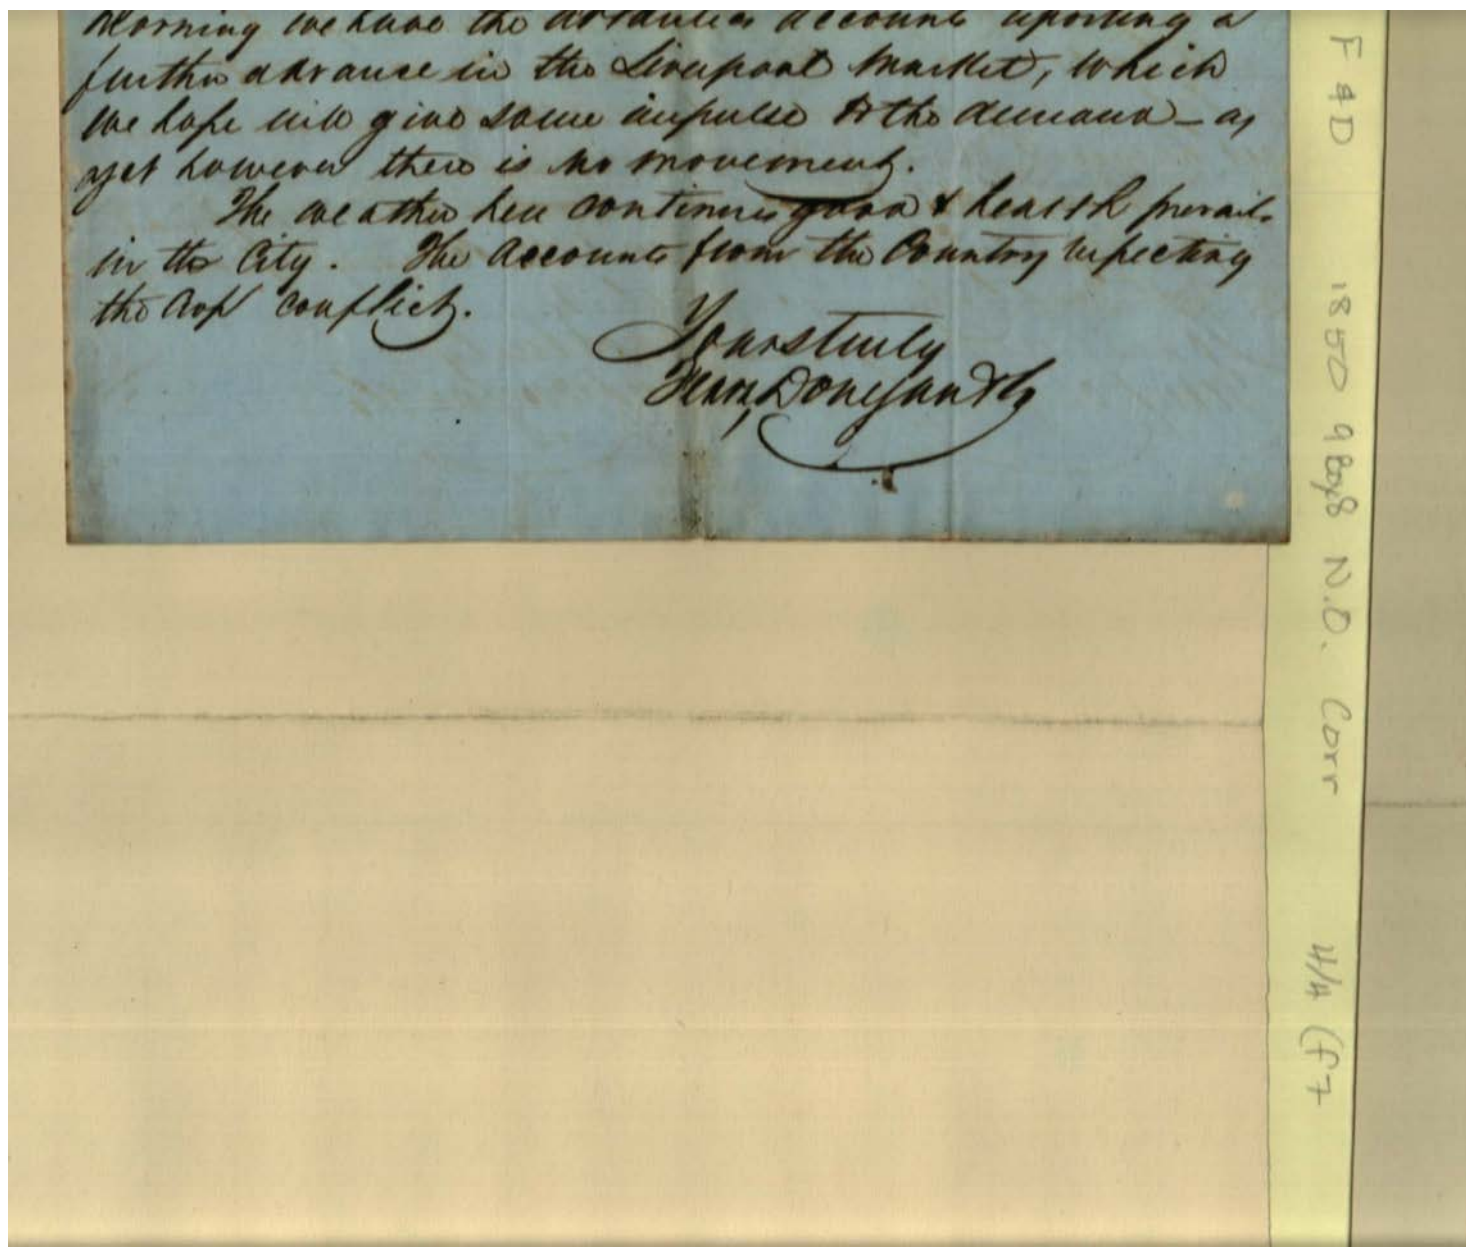 Morning we have the account reporting a
further advance in the Liverpool Market, which
we hope will give some impulse to the demand _ as
yet however there is no movement.
The weather here continues good & health prevails
in the City. The accounts from the Country respecting
the crop conflict.
Yours truly
Fearn Donegan & Co
F & D 1850 9 Box 8 N.O. Corr 4/4 (f7